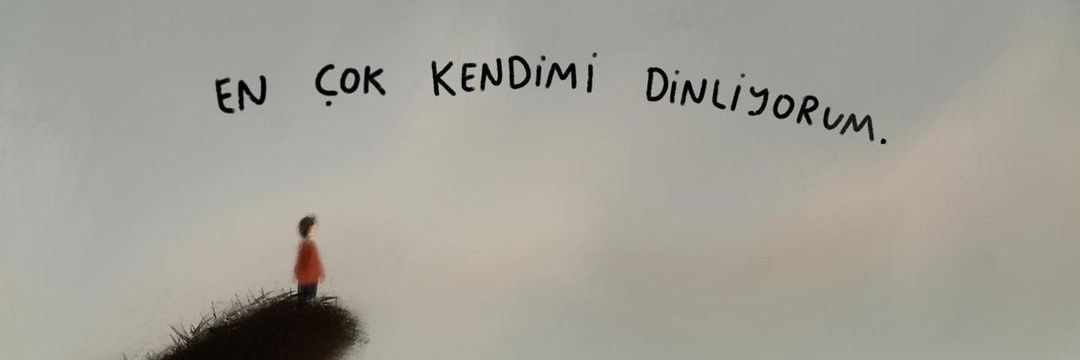 EN ÇOK KENDİMİ DİNLİYORUM.